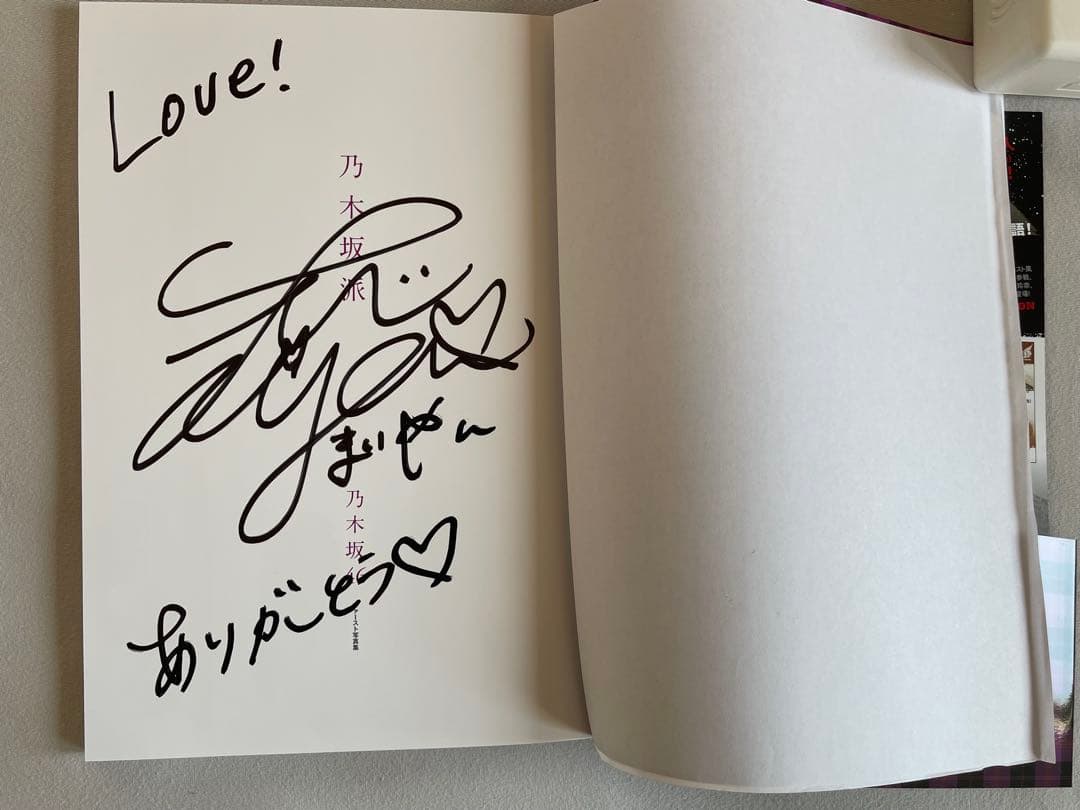 Love!
乃木坂派
まいやん
乃木坂46
ファースト写真集
ありがとう♡
語!